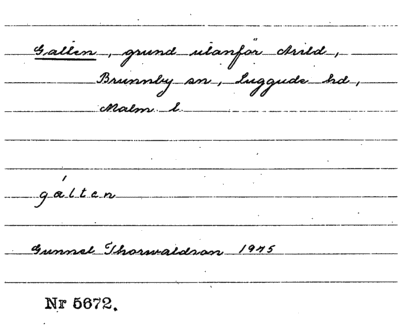 Galten, grund utanför Arild,
Brunnby sn, Luggude hd,
Malm l
gál̀ten
Gunnel Thorwaldson 1975
Nr 5672.